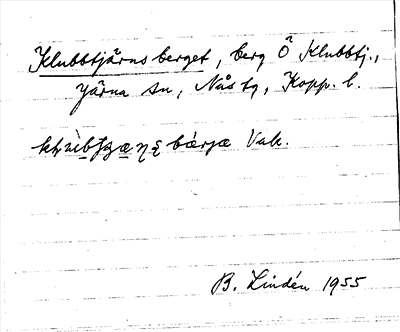 Klubbtjärnsberget, berg Ö Klubbtj.,
Järna sn, Nås tg, Kopp. l.
bǽrjæ Vak.
B. Lindén 1955